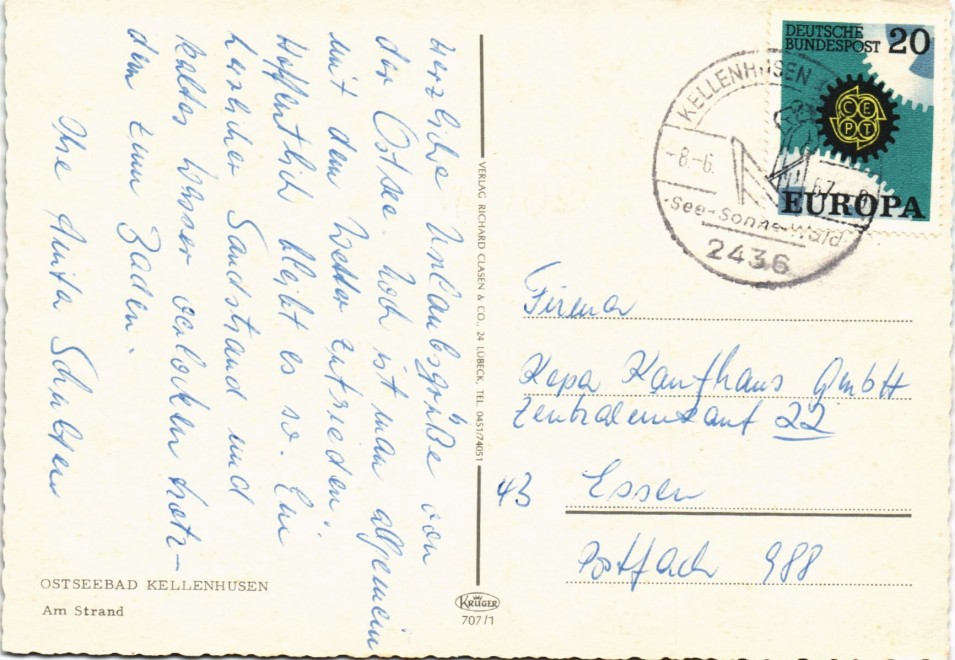 Herzliche Urlaubsgrüße von
der Ostsee. Noch ist man allgemein
mit dem Wetter zufrieden.
Hoffentlich bleibt es so. Ein
herrlicher Sandstrand und
kaltes Wasser verlocken trotz-
dem zum Baden.
Ihre Anita Schulten
OSTSEEBAD KELLENHUSEN
Am Strand
VERLAG RICHARD CLASEN & CO., 24 LÜBECK, TEL. 0451/74051
KRÜGER
707/1
DEUTSCHE
BUNDESPOST 20
CEPT
EUROPA
KELLENHUSEN
-8.-6. 67
See-Sonne-Wald
2436
Firma
Kepa Kaufhaus GmbH
Zentraleinkauf 22
43 Essen
Postfach 988